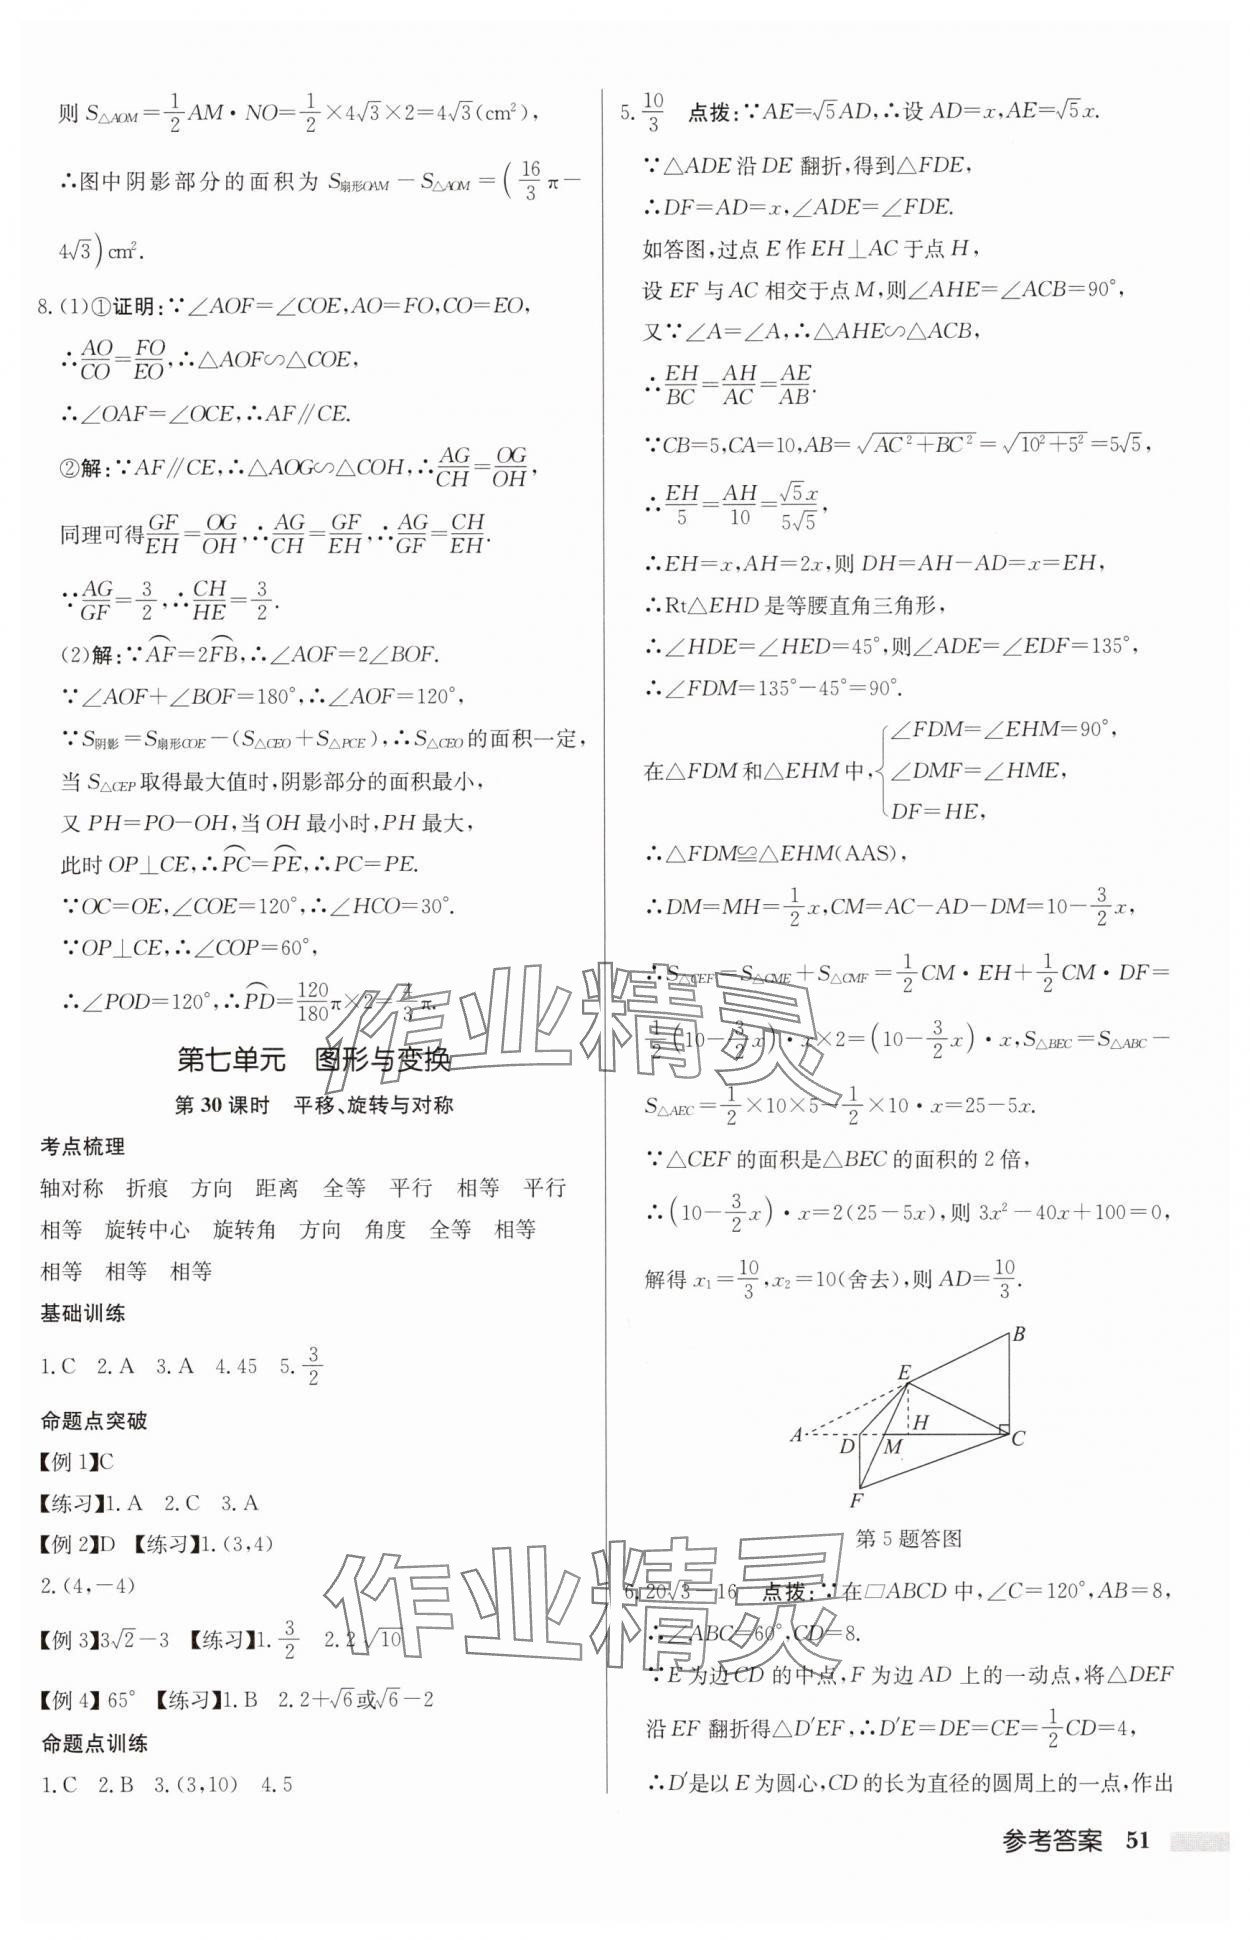 则 S△AOM=1/2 AM·NO=1/2×4√3×2=4√3(cm²),
∴图中阴影部分的面积为 S扇形OAM−S△AOM=(16/3 π−
4√3)cm².
8.(1)①证明:∵∠AOF=∠COE,AO=FO,CO=EO,
∴AO/CO=FO/EO,∴△AOF∽△COE,
∴∠OAF=∠OCE,∴AF∥CE.
②解:∵AF∥CE,∴△AOG∽△COH,∴AG/CH=OG/OH,
同理可得GF/EH=OG/OH,∴AG/CH=GF/EH,∴AG/GF=CH/EH.
∵AG/GF=3/2,∴CH/HE=3/2.
(2)解:∵A͡F=2F͡B,∴∠AOF=2∠BOF.
∵∠AOF+∠BOF=180°,∴∠AOF=120°,
∵S阴影=S扇形COE−(S△CEO+S△PCE),∴S△CEO的面积一定,
当 S△CEP取得最大值时,阴影部分的面积最小,
又 PH=PO−OH,当 OH 最小时,PH 最大,
此时 OP⊥CE,∴P͡C=P͡E,∴PC=PE.
∵OC=OE,∠COE=120°,∴∠HCO=30°.
∵OP⊥CE,∴∠COP=60°,
∴∠POD=120°,∴P͡D=120/180 π×2=4/3 π.
第七单元 图形与变换
第 30 课时 平移、旋转与对称
考点梳理
轴对称 折痕 方向 距离 全等 平行 相等 平行
相等 旋转中心 旋转角 方向 角度 全等 相等
相等 相等 相等
基础训练
1.C 2.A 3.A 4.45 5.3/2
命题点突破
【例 1】C
【练习】1.A 2.C 3.A
【例 2】D 【练习】1.(3,4)
2.(4,−4)
【例 3】3√2−3 【练习】1.3/2 2.2√10
【例 4】65° 【练习】1.B 2.2+√6或√6−2
命题点训练
1.C 2.B 3.(3,10) 4.5
5.10/3 点拨:∵AE=√5AD,∴设 AD=x,AE=√5x.
∵△ADE沿 DE 翻折,得到△FDE,
∴DF=AD=x,∠ADE=∠FDE.
如答图,过点 E 作 EH⊥AC 于点 H,
设 EF 与 AC 相交于点 M,则∠AHE=∠ACB=90°,
又∵∠A=∠A,∴△AHE∽△ACB,
∴EH/BC=AH/AC=AE/AB.
∵CB=5,CA=10,AB=√(AC²+BC²)=√(10²+5²)=5√5,
∴EH/5=AH/10=√5x/5√5,
∴EH=x,AH=2x,则 DH=AH−AD=x=EH,
∴Rt△EHD 是等腰直角三角形,
∴∠HDE=∠HED=45°,则∠ADE=∠EDF=135°,
∴∠FDM=135°−45°=90°.
在△FDM 和△EHM 中,{∠FDM=∠EHM=90°,
∠DMF=∠HME,
DF=HE,
∴△FDM≌△EHM(AAS),
∴DM=MH=1/2 x,CM=AC−AD−DM=10−3/2 x,
∵S△CEF=S△CME+S△CMF=1/2 CM·EH+1/2 CM·DF=
1/2(10−3/2 x)·x×2=(10−3/2 x)·x,S△BEC=S△ABC−
S△AEC=1/2×10×5−1/2×10·x=25−5x.
∵△CEF 的面积是△BEC 的面积的 2 倍,
∴(10−3/2 x)·x=2(25−5x),则 3x²−40x+100=0,
解得 x₁=10/3,x₂=10(舍去),则 AD=10/3.
B
E
H
A
D
M
C
F
第 5 题答图
6.20√3−16 点拨:∵在□ABCD 中,∠C=120°,AB=8,
∴∠ABC=60°,CD=8.
∵E 为边 CD 的中点,F 为边 AD 上的一动点,将△DEF
沿 EF 翻折得△D′EF,∴D′E=DE=CE=1/2 CD=4,
∴D′是以 E 为圆心,CD 的长为直径的圆周上的一点,作出
参考答案 51
作业精灵
作业精灵